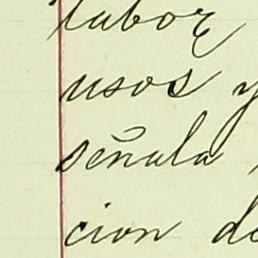 labor
usos y
señala
cion de